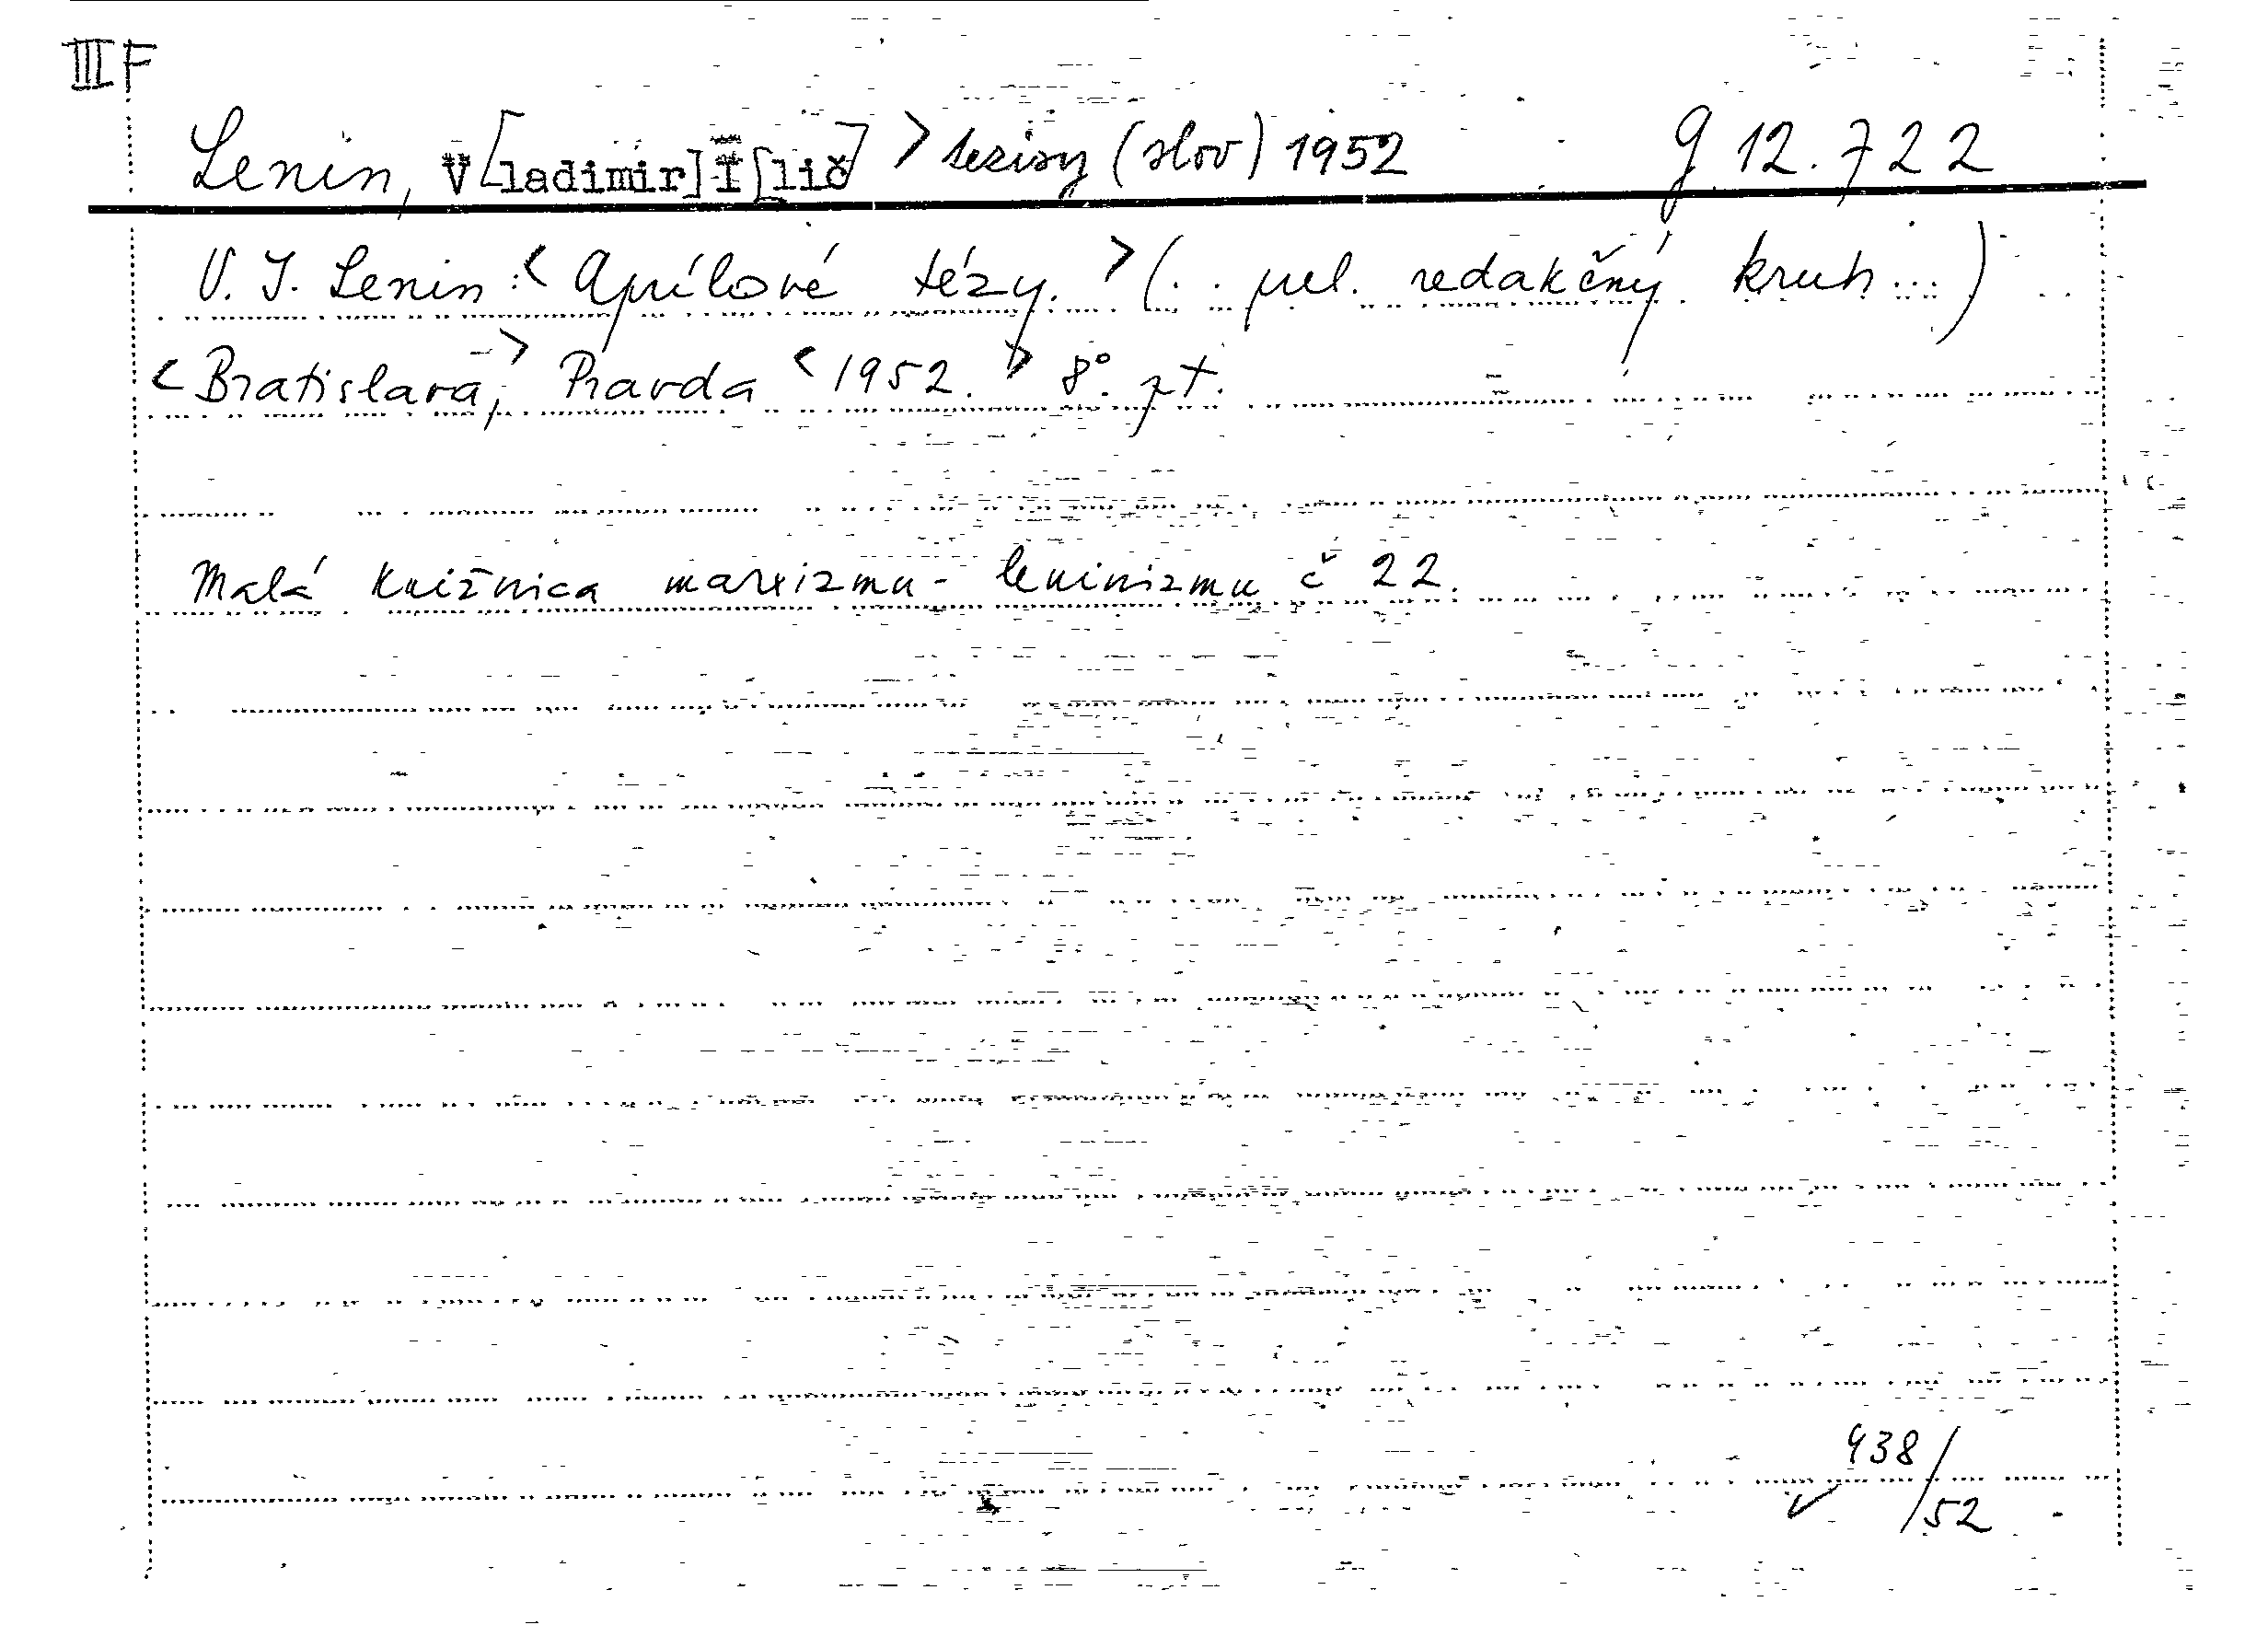 III F
Lenin, V[ladimir] I[lič] > tezisy (slov) 1952 g 12.722
V. I. Lenin: < Aprílové tézy. > (.. prel. redakčný kruh ...)
< Bratislava, > Pravda < 1952. > 8°. zt.
Malá knižnica marxizmu-leninizmu č 22.
938/52